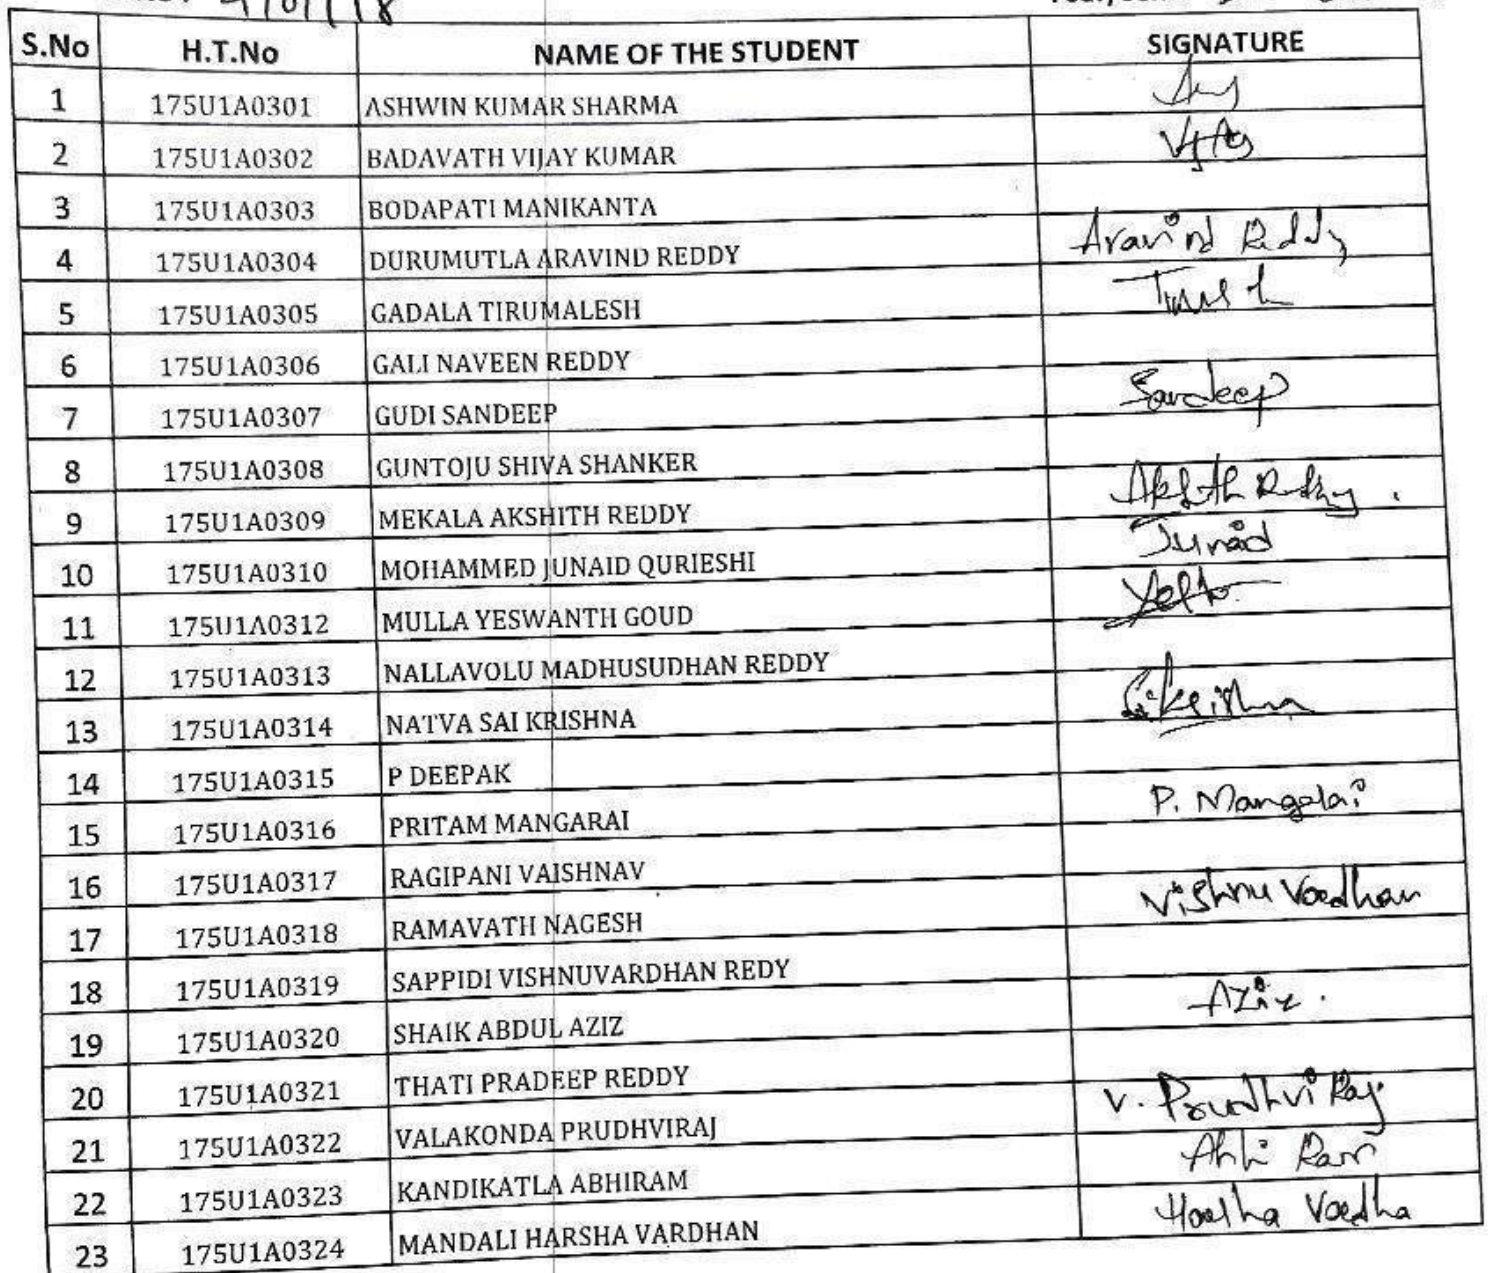 S.No H.T.No NAME OF THE STUDENT SIGNATURE
1 175U1A0301 ASHWIN KUMAR SHARMA
2 175U1A0302 BADAVATH VIJAY KUMAR
3 175U1A0303 BODAPATI MANIKANTA
4 175U1A0304 DURUMUTLA ARAVIND REDDY Aravind Reddy
5 175U1A0305 GADALA TIRUMALESH
6 175U1A0306 GALI NAVEEN REDDY
7 175U1A0307 GUDI SANDEEP Sandeep
8 175U1A0308 GUNTOJU SHIVA SHANKER
9 175U1A0309 MEKALA AKSHITH REDDY
10 175U1A0310 MOHAMMED JUNAID QURIESHI Junaid
11 175U1A0312 MULLA YESWANTH GOUD
12 175U1A0313 NALLAVOLU MADHUSUDHAN REDDY
13 175U1A0314 NATVA SAI KRISHNA
14 175U1A0315 P DEEPAK
15 175U1A0316 PRITAM MANGARAI P. Mangalai
16 175U1A0317 RAGIPANI VAISHNAV
17 175U1A0318 RAMAVATH NAGESH
18 175U1A0319 SAPPIDI VISHNUVARDHAN REDY Vishnu Vardhan
19 175U1A0320 SHAIK ABDUL AZIZ Aziz.
20 175U1A0321 THATI PRADEEP REDDY
21 175U1A0322 VALAKONDA PRUDHVIRAJ V. Prudhvi Raj
22 175U1A0323 KANDIKATLA ABHIRAM Abhi Ram
23 175U1A0324 MANDALI HARSHA VARDHAN Harsha Vardha